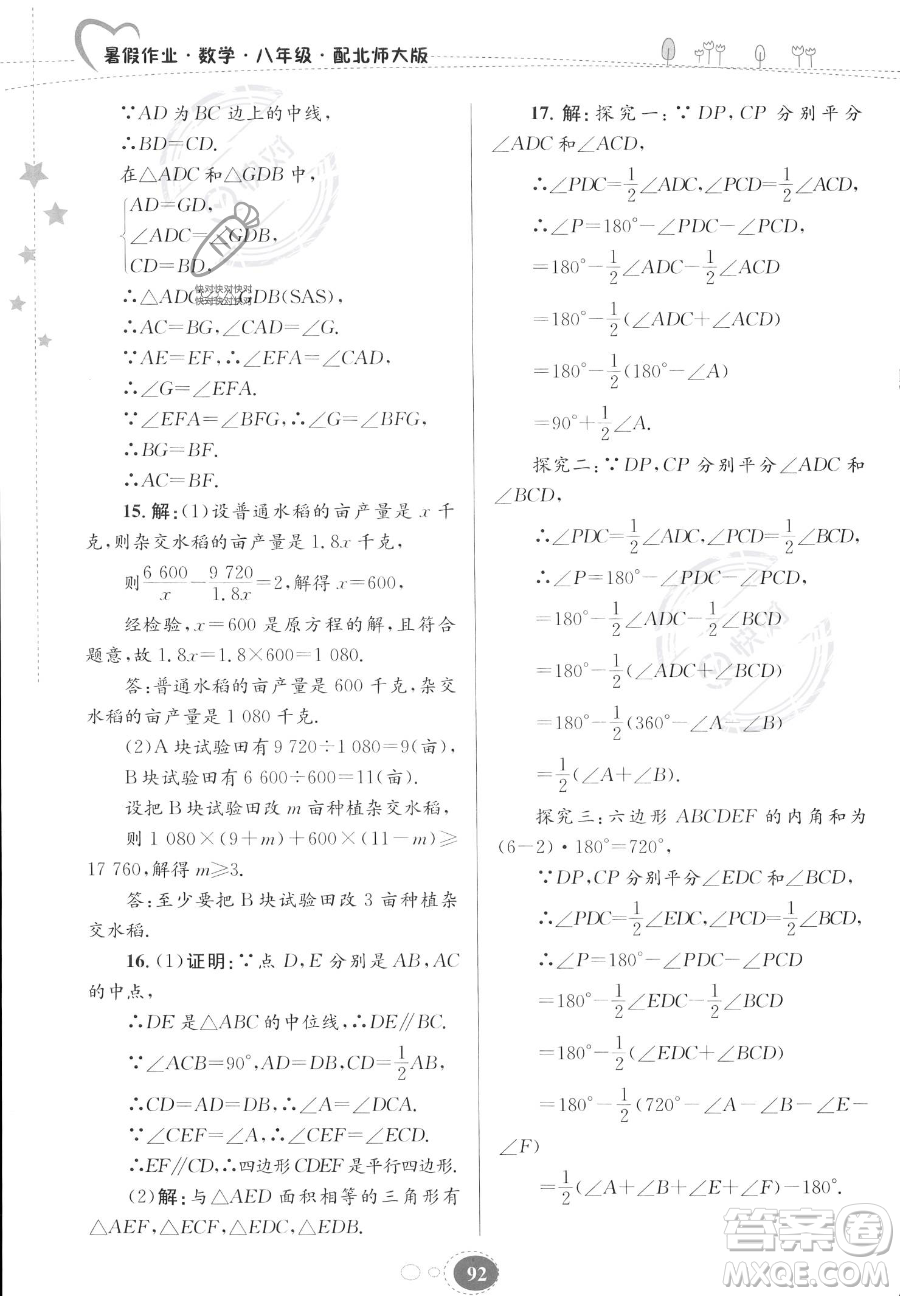 暑假作业·数学·八年级·配北师大版
∵AD 为 BC 边上的中线,
∴BD=CD.
在△ADC 和△GDB 中,
AD=GD,
∠ADC=∠GDB,
CD=BD,
∴△ADC≌△GDB(SAS)
∴AC=BG,∠CAD=∠G.
∵AE=EF,∴∠EFA=∠CAD,
∴∠G=∠EFA.
∵∠EFA=∠BFG,∴∠G=∠BFG,
∴BG=BF.
∴AC=BF.
15.解:(1)设普通水稻的亩产量是 x 千
克,则杂交水稻的亩产量是 1.8x 千克,
则6 600/x−9 720/1.8x=2,解得 x=600,
经检验,x=600 是原方程的解,且符合
题意,故 1.8x=1.8×600=1 080.
答:普通水稻的亩产量是 600 千克,杂交
水稻的亩产量是 1 080 千克.
(2)A 块试验田有 9 720÷1 080=9(亩),
B 块试验田有 6 600÷600=11(亩),
设把 B 块试验田改 m 亩种植杂交水稻,
则 1 080×(9+m)+600×(11−m)≥
17 760,解得 m≥3.
答:至少要把 B 块试验田改 3 亩种植杂
交水稻.
16.(1)证明:∵点 D,E 分别是 AB,AC
的中点,
∴DE 是△ABC 的中位线,∴DE∥BC.
∵∠ACB=90°,AD=DB,CD=1/2AB,
∴CD=AD=DB,∴∠A=∠DCA.
∵∠CEF=∠A,∴∠CEF=∠ECD.
∴EF∥CD,∴四边形 CDEF 是平行四边形.
(2)解:与△AED 面积相等的三角形有
△AEF,△ECF,△EDC,△EDB.
17.解:探究一:∵DP,CP 分别平分
∠ADC 和∠ACD,
∴∠PDC=1/2∠ADC,∠PCD=1/2∠ACD,
∴∠P=180°−∠PDC−∠PCD
=180°−1/2∠ADC−1/2∠ACD
=180°−1/2(∠ADC+∠ACD)
=180°−1/2(180°−∠A)
=90°+1/2∠A.
探究二:∵DP,CP 分别平分∠ADC 和
∠BCD,
∴∠PDC=1/2∠ADC,∠PCD=1/2∠BCD,
∴∠P=180°−∠PDC−∠PCD
=180°−1/2∠ADC−1/2∠BCD
=180°−1/2(∠ADC+∠BCD)
=180°−1/2(360°−∠A−∠B)
=1/2(∠A+∠B).
探究三:六边形 ABCDEF 的内角和为
(6−2)·180°=720°,
∵DP,CP 分别平分∠EDC 和∠BCD,
∴∠PDC=1/2∠EDC,∠PCD=1/2∠BCD,
∴∠P=180°−∠PDC−∠PCD
=180°−1/2∠EDC−1/2∠BCD
=180°−1/2(∠EDC+∠BCD)
=180°−1/2(720°−∠A−∠B−∠E−
∠F)
=1/2(∠A+∠B+∠E+∠F)−180°.
92
快对快对快对
快对快对快对
快对
快对
答案卷
MXQE.COM